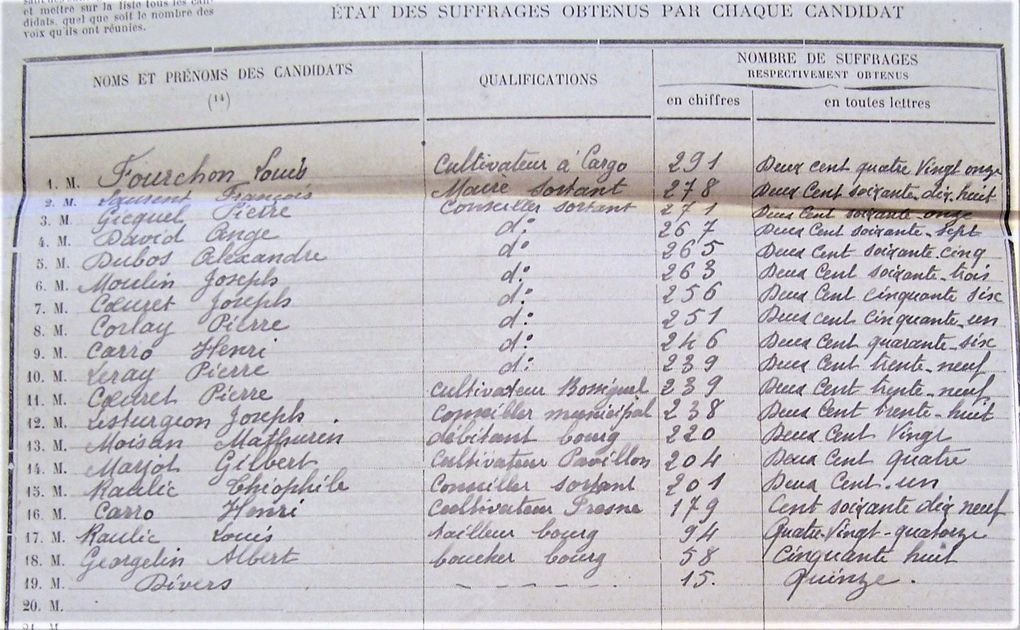 et mettre sur la liste tous les can-
didats, quel que soit le nombre des
voix qu'ils ont réunies.
ÉTAT DES SUFFRAGES OBTENUS PAR CHAQUE CANDIDAT
NOMS ET PRÉNOMS DES CANDIDATS
(14)
QUALIFICATIONS
NOMBRE DE SUFFRAGES
RESPECTIVEMENT OBTENUS
en chiffres
en toutes lettres
1. M. Fourchon Louis Cultivateur à Cargo 291 Deux cent quatre vingt onze
2. M. Laurent François Maire sortant 278 Deux Cent soixante dix huit
3. M. Gicquel Pierre Conseiller sortant 271 Deux Cent soixante onze
4. M. David Ange d: 267 Deux Cent soixante sept
5. M. Dubos Alexandre d: 265 Deux Cent soixante cinq
6. M. Moulin Joseph d: 263 Deux Cent soixante trois
7. M. Cœuret Joseph d: 256 Deux Cent cinquante six
8. M. Corlay Pierre d: 251 Deux cent cinquante un
9. M. Carro Henri d: 246 Deux cent quarante six
10. M. Leray Pierre d: 239 Deux Cent trente neuf
11. M. Cœuret Pierre Cultivateur 239 Deux Cent trente neuf
12. M. Lesturgeon Joseph Conseiller municipal 238 Deux Cent trente huit
13. M. Moisan Mathurin débitant bourg 220 Deux Cent Vingt
14. M. Marjot Gilbert Cultivateur Pavillon 204 Deux Cent quatre
15. M. Raulic Théophile Conseiller sortant 201 Deux Cent un
16. M. Carro Henri Cultivateur Fresne 179 Cent soixante dix neuf
17. M. Raulic Louis tailleur bourg 94 Quatre-Vingt-quatorze
18. M. Georgelin Albert boucher bourg 58 Cinquante huit
19. M. Divers - - - - - 15. Quinze.
20. M.
21. M.